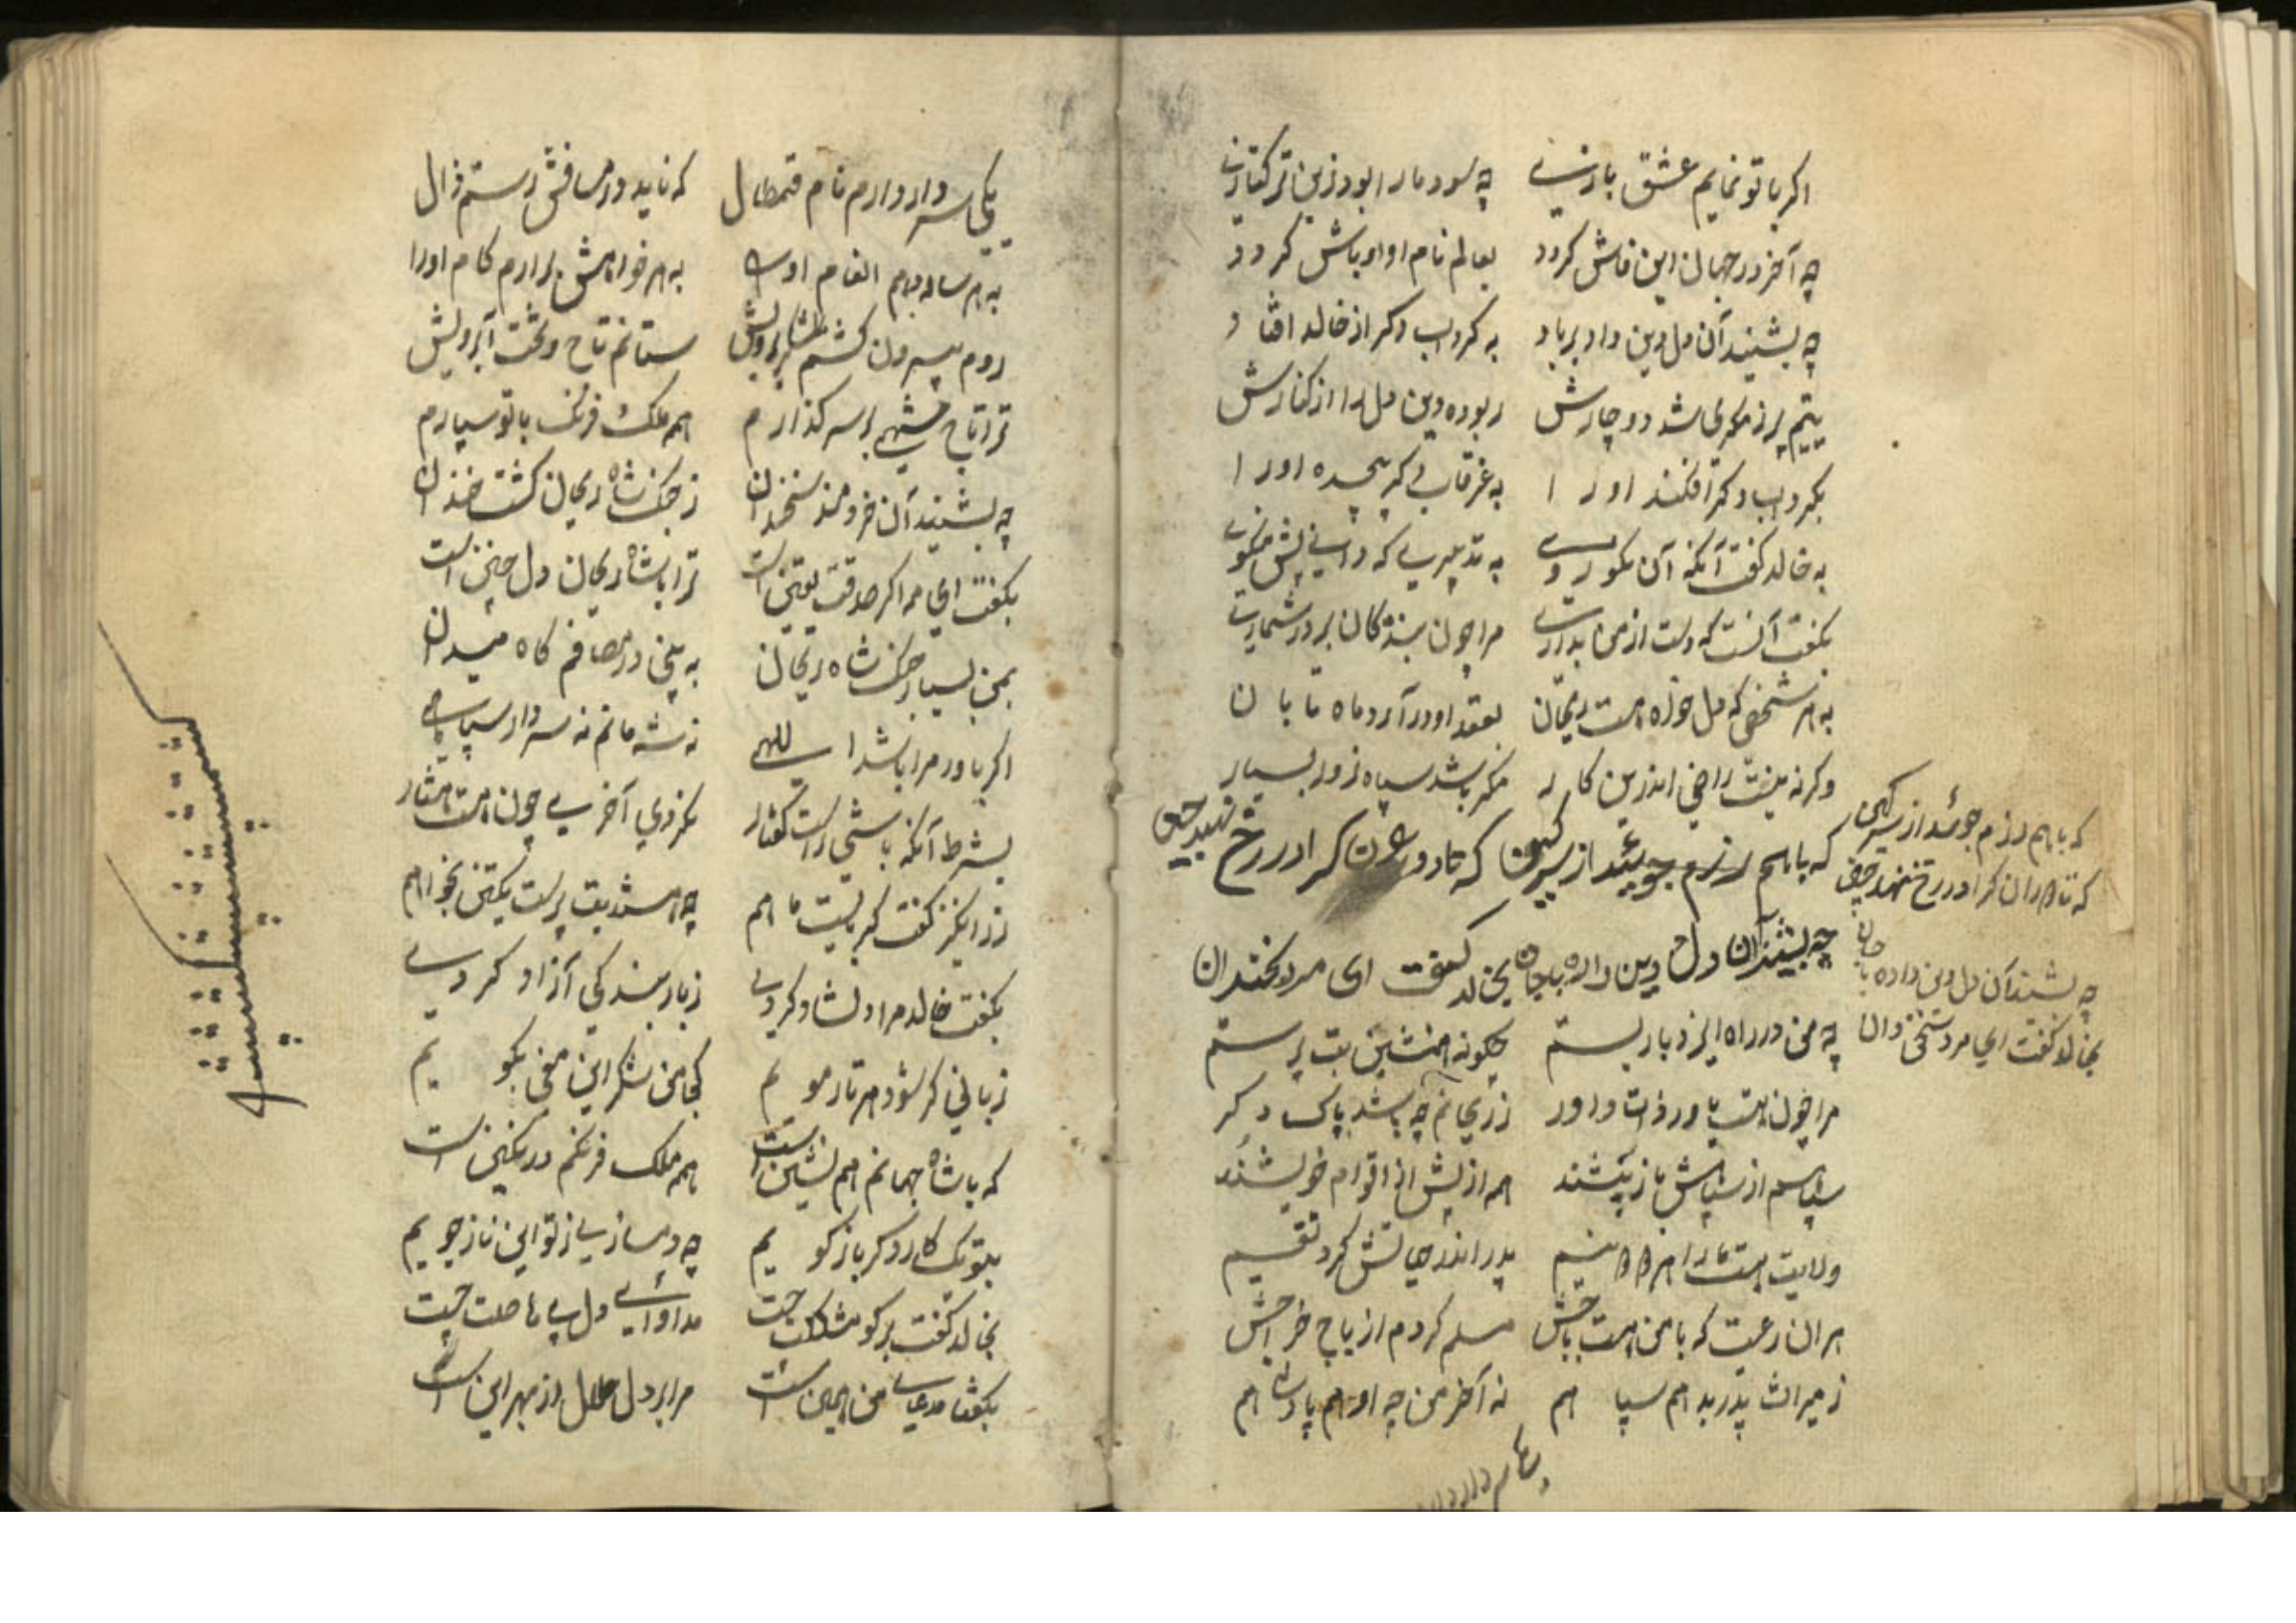 اکر با تو نمایم عشق بازی چه سود مارا بود زین ترکتازی
چه آخر در جهان این فاش کردد بعالم نام او اوباش کردد
چه بشنید آن دل و دین داد برباد به کرداب دکر از خاله افتاد
یتیم پر ز مکری شد دو چارش ربوده دین و دل را از کنارش
بکرداب دکر افکند اورا به غرقابی که پیچیده اورا
به خالد کفت آنکه آن نکوروی به تدبیری که دانی پیش میکوی
بکفت آنست که دست از من بداری مرا چون بندکان برده شماری
به هر شخصی که دل خواه است ریحان بعقد او درآرد ماه تابان
وکرنه نیست راضی اندرین کار مکر باشد سپاه زور بسیار
که باهم رزم جویند از سر کین که تا دوران کرا در رخ نهد چین
که باهم رزم جویند از سر کین
که تا دوران کرا در رخ نهد چین
چه بشنید آن دل و دین داده باجان بخالد کفت ای مرد سخندان
چه بشنید آن دل و دین داده با جان
بخالد کفت ای مرد سخن دان
چه من در راه ایزد بار بستم چکونه همنشین بت پرستم
مرا چون هست یاور ذات داور ز ریحانم چه باشد باک دکر
سپاهم از سپاهش باز بیشند همه از پیش از اقوام خویشند
ولایت هست مارا هر دو نیم پدر اندر حیاتش کرد تقسیم
هر آن رعیت که با من هست باخش مسلم کردم از باج خراجش
ز میراث پدر بد هم سپاهم نه آخر من چه او هم پادشاهم
یکی سردار دارم نام قمطال که ناید در مصافش رستم زال
به هر ساله دهم انعام اورا به هر خواهش برارم کام اورا
روم بیرون کشم لشکر برویش ستانم تاج و تخت آبرویش
ترا تاج شهی بر سر کذارم هم ملک فرنک با تو سپارم
چه بشنید آن خردمند سخندان ز جنک شاه ریحان کشت خندان
بکفت ای مه اکر صدقت یقین است ترا با شاه ریحان دل چنین است
بمن بسپار جنک شاه ریحان به بینی در مصافم کاه میدان
اکر یاور مرا باشد اللهی نه شه مانم نه سردار سپاهی
بشرط آنکه باشی راست کفتار نکردی آخر پی چون هست اینکار
زر انکیز کفت کر نیست ماهم چه هستند بت پرست یکتن نخواهم
بکفت خالد مرا دلشاد کردی ز بار بندکی آزاد کردی
زبانی کر شود هر تار مویم کجا من شکر این معنی بکویم
که با شاه جهانم هم نشین است هم ملک فرنکم در نکین است
بتو یک کار دکر باز کویم چه دمسازی از تو این ناز جویم
بخالد کفت برکو مشکلت چیست مداوای دل بی حاصلت چیست
بکفتا مدعای من همین است مرا بر دل ملال از بهر این است